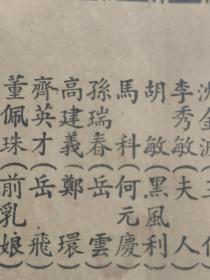 李秀敏（夫人
胡敏（黑風利
馬科（何元慶
孫瑞春（岳雲
高建義（鄭環
齊英才（岳飛
董佩珠（前乳娘